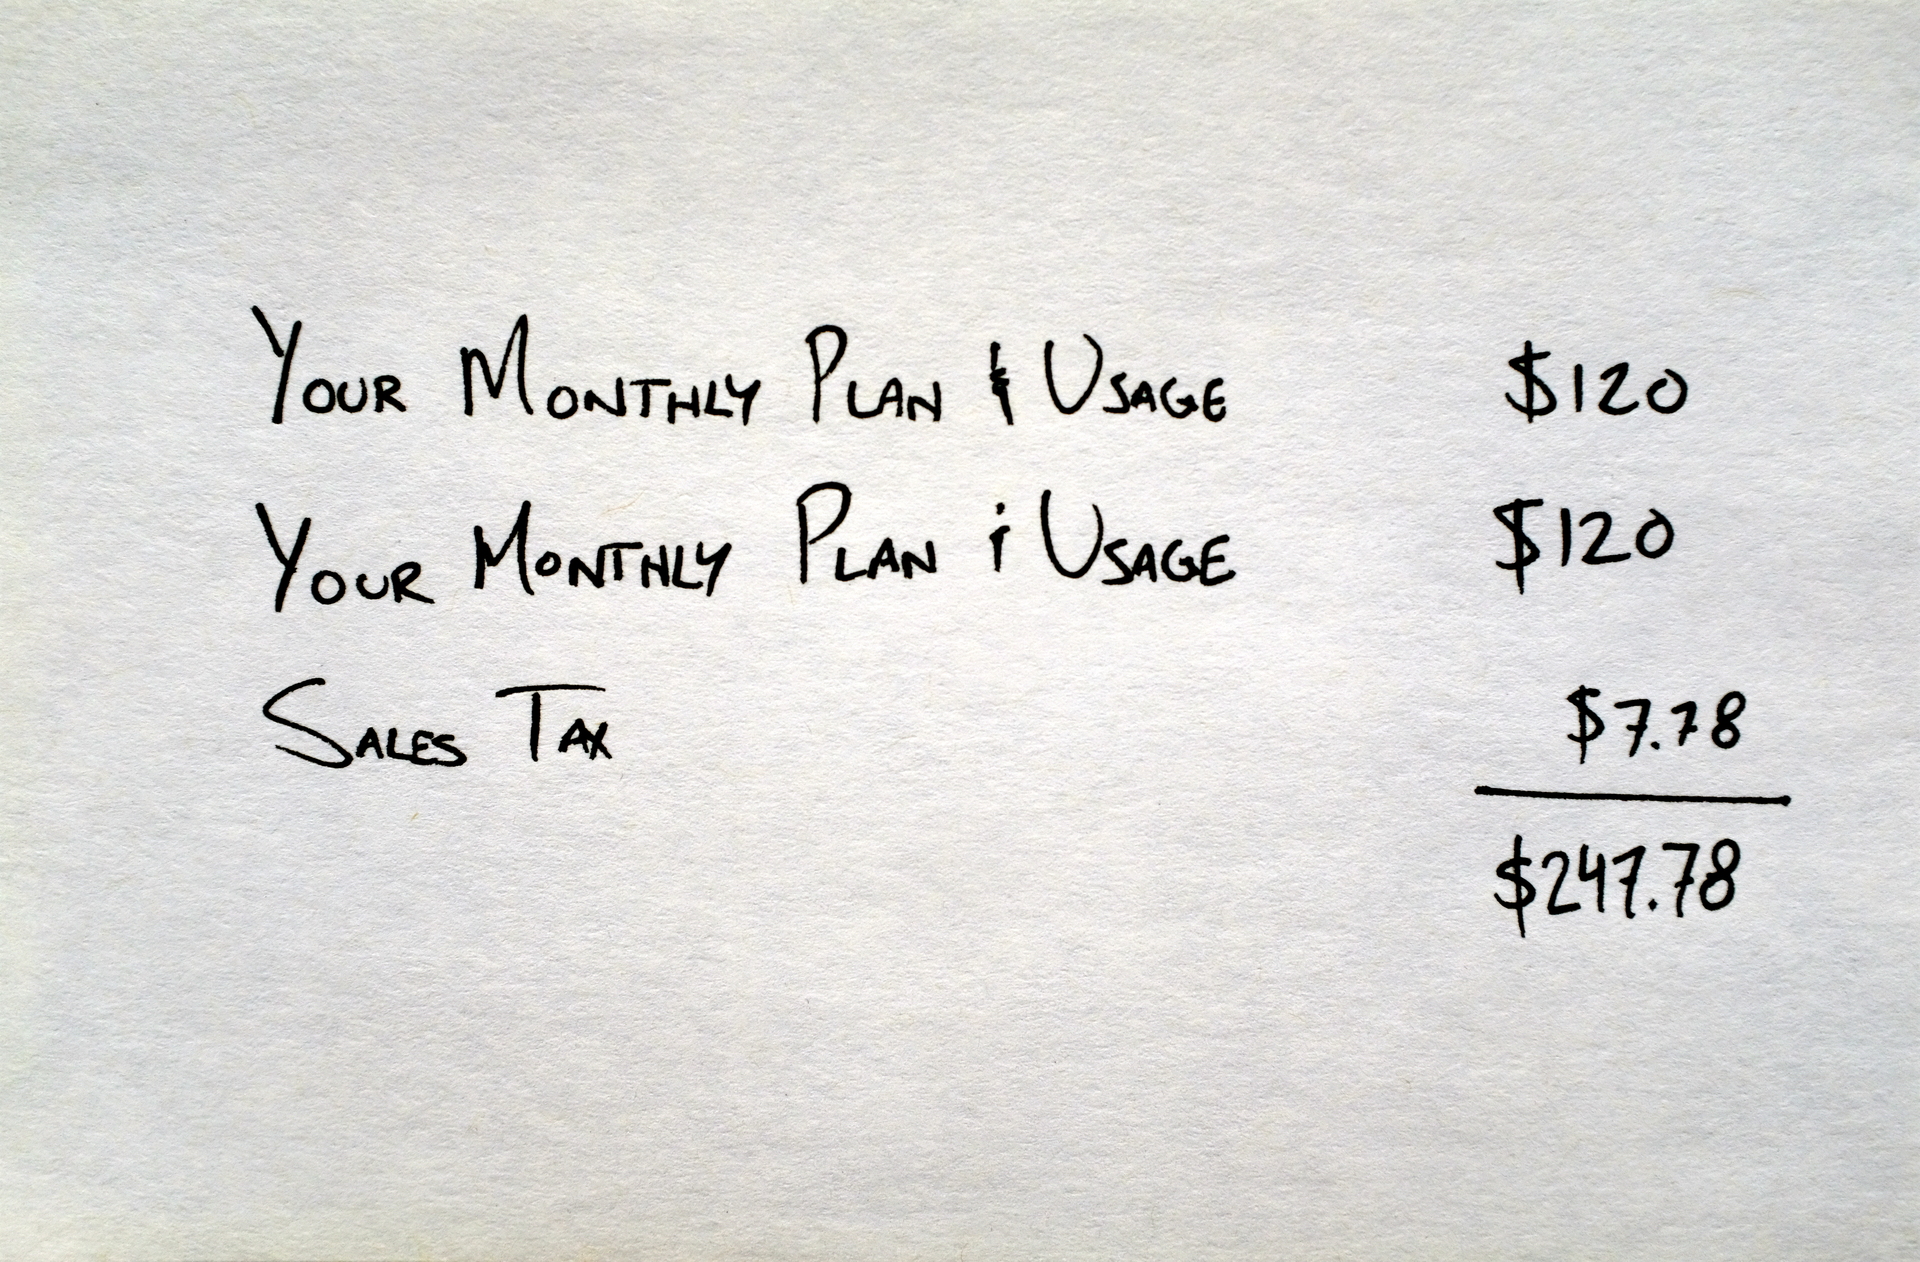 Your Monthly Plan & Usage $120
Your Monthly Plan & Usage $120
Sales Tax $7.78
$247.78